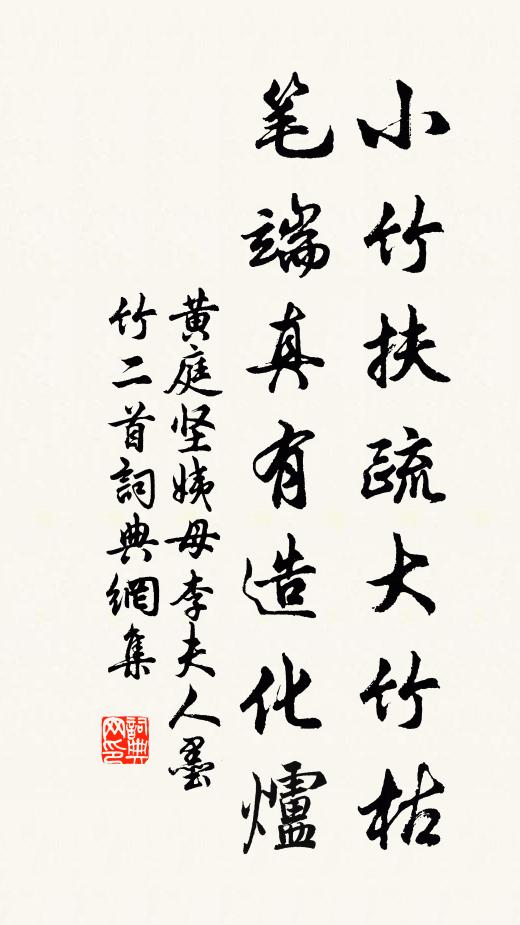 小竹扶疏大竹枯
笔端真有造化爐
黄庭坚姨母李夫人墨
竹二首詞典網集
詞典
网印